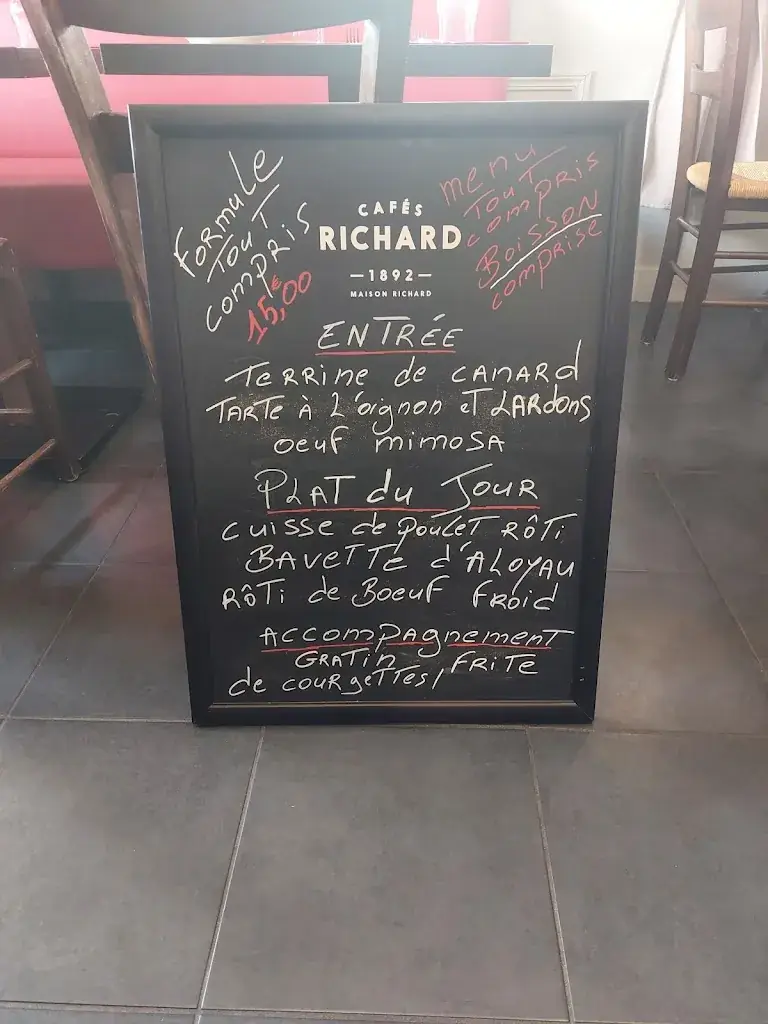 Formule
Tout
compris
15,00€
menu
Tout
compris
Boisson
comprise
CAFÉS
RICHARD
—1892—
MAISON RICHARD
ENTRÉE
Terrine de canard
Tarte à l'oignon et lardons
oeuf mimosa
Plat du Jour
cuisse de poulet rôti
Bavette d'aloyau
Rôti de Boeuf froid
Accompagnement
Gratin
de courgettes / Frite